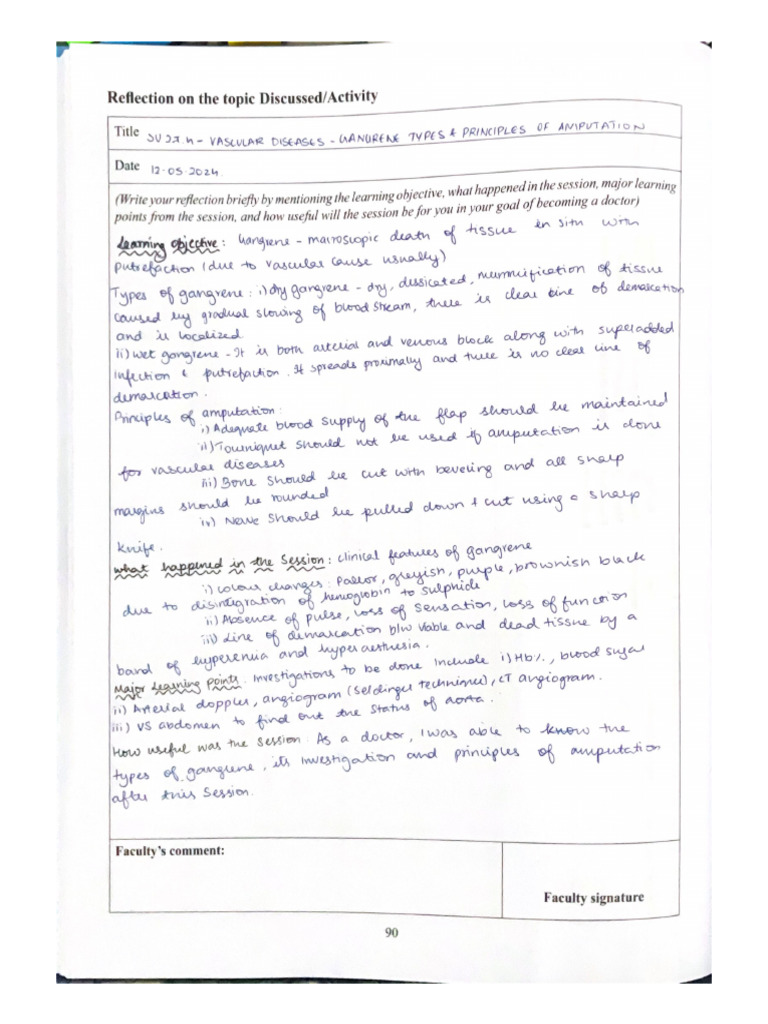 Reflection on the topic Discussed/Activity
Title SU 27.4 - VASCULAR DISEASES - GANGRENE TYPES & PRINCIPLES OF AMPUTATION
Date 12.05.2024.
(Write your reflection briefly by mentioning the learning objective, what happened in the session, major learning
points from the session, and how useful will the session be for you in your goal of becoming a doctor)
Learning objective: Gangrene - macroscopic death of tissue in situ with
putrefaction (due to vascular cause usually)
Types of gangrene: i) dry gangrene - dry, dessicated, mummification of tissue
caused by gradual slowing of blood stream, there is clear line of demarcation
and is localized
ii) wet gangrene - It is both arterial and venous block along with superadded
infection & putrefaction. It spreads proximally and there is no clear line of
demarcation.
Principles of amputation:
i) Adequate blood supply of the flap should be maintained
ii) Tourniquet should not be used if amputation is done
for vascular diseases
iii) Bone should be cut with beveling and all sharp
margins should be rounded
iv) Nerve should be pulled down & cut using a sharp
knife.
What happened in the session: clinical features of gangrene
i) colour changes: Pallor, greyish, purple, brownish black
due to disintigration of hemoglobin to sulphide
ii) Absence of pulse, loss of sensation, loss of function
iii) Line of demarcation b/w viable and dead tissue by a
band of hyperemia and hyperaesthesia.
Major learning points. Investigations to be done include i) Hb%, blood sugar
ii) Arterial doppler, angiogram (Seldinger technique), CT angiogram.
iii) US abdomen to find out the status of aorta.
How useful was the session. As a doctor, I was able to know the
types of gangrene, its investigation and principles of amputation
after this session.
Faculty's comment:
Faculty signature
90